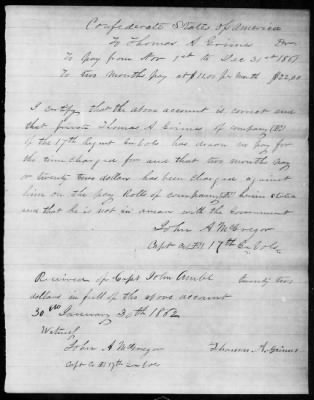 Confederate States of America
To Thomas A. Grimes Dr
To Pay from Nov 1st to Dec 31st 1861
To two months Pay at $11.00 per Month $22.00
I certify that the above account is correct and
that private Thomas A Grimes of company
of the 17th Regmt has drawn no pay for
the time charged for and that two months pay
or twenty two dollars has been charged against
him on the pay Rolls of company
and that he is not in arrears with the Government
John A McGregor
Capt Co 17th Ga Vols
Received of Capt John twenty two
dollars in full of the above account
30 January 30th 1862
Witness
John A McGregor Thomas A. Grimes
Capt Co 17th Ga Vols